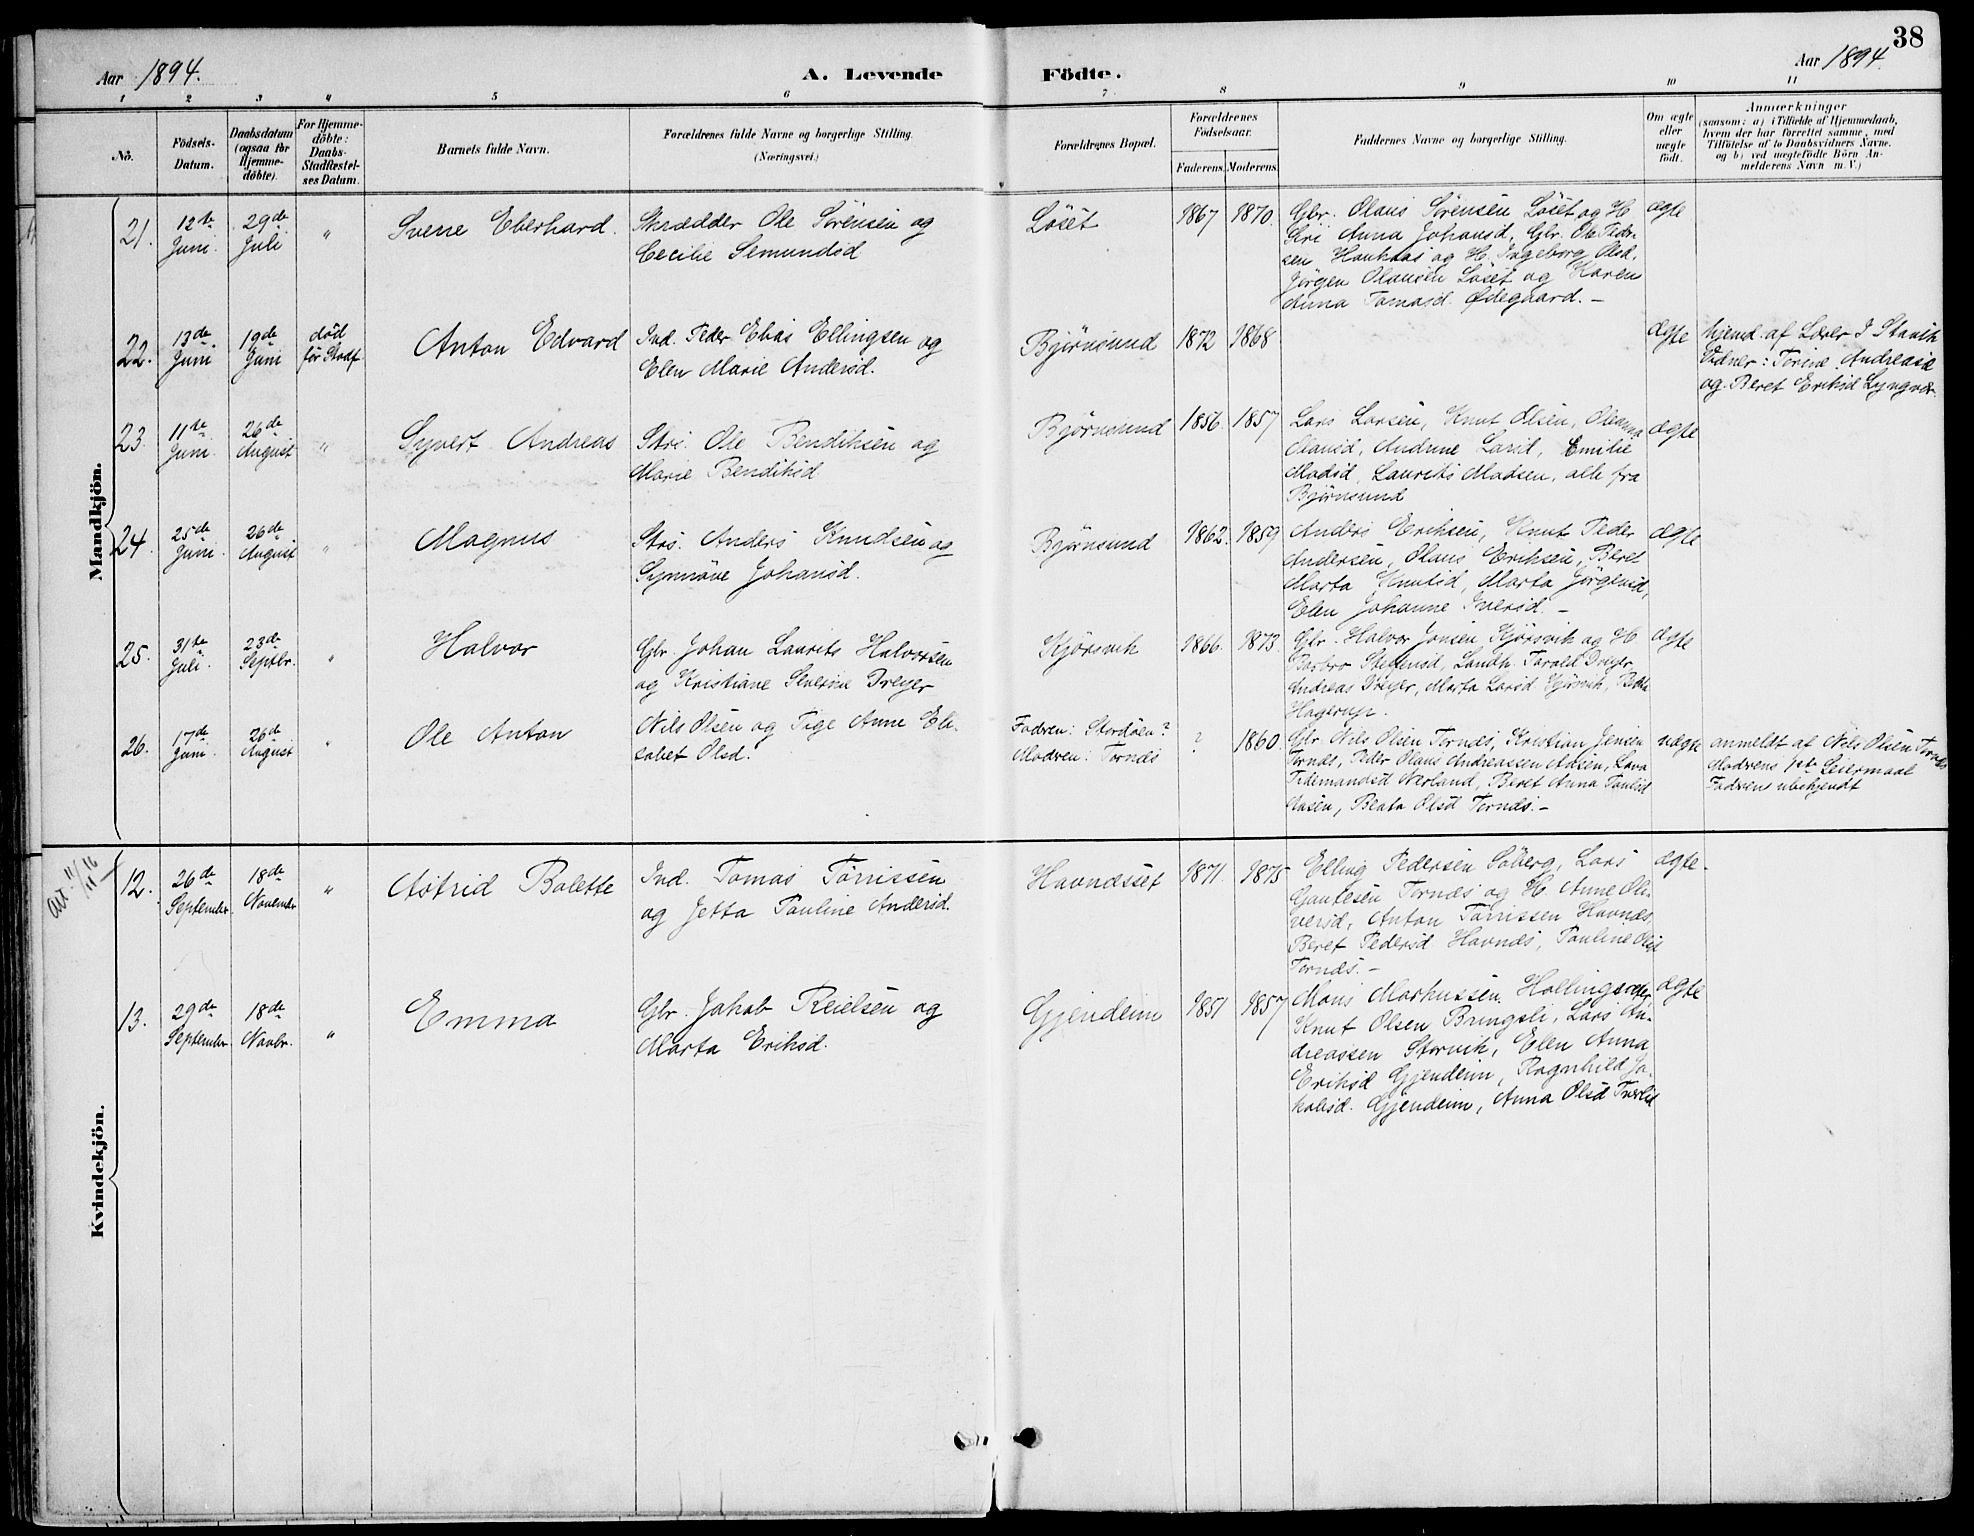 38
Aar 1894.
A. Levende
Födte.
Aar 1894.
1 2 3 4 5 6 7 8 9 10 11
No.
Födsels-
Datum.
Daabsdatum
(ogsaa for
Hjemme-
döbte).
For Hjemme-
döbte:
Daabs-
Stadfæstel-
ses Datum.
Barnets fulde Navn.
Forældrenes fulde Navne og borgerlige Stilling.
(Næringsvei.)
Forældrenes Bopæl.
Forældrenes
Födselsaar.
Faderens. Moderens.
Faddernes Navne og borgerlige Stilling.
Om ægte
eller
uægte
födt.
Anmærkninger
(saasom: a) i Tilfælde af Hjemmedaab,
hvem der har forrettet samme, med
Tilföielse af to Daabsvidners Navne.
og b) ved uegtefödte Börn An-
melderens Navn m. V.)
Mandkjön.
21.
12te
Juni
29de
Juli
"
Svene Eberhard.
Skrædder Ole Sörensen og
Cecilie Semundsd
Löset
1867
1870.
Gbr. Olaus Sörensen Löset og H
Siri Anna Johansd, Gbr. Ole Peder-
sen Haukaas og H. Ingeborg Olsd.
Jörgen Olausen Löset og Karen
Anna Tomasd. Ødegaard. –
ægte
22.
13de
Juni
19de
Juni
död
för Stadf.
Anton Edvard
Ind. Peder Elias Ellingsen og
Elen Marie Andersd.
Bjørnsund
1872
1868
ægte
hjemd. af Lærer I Stavik
Vidner: Andreasd
og Beret Eriksd Lyngvær.
23.
11te
Juni
26de
August
"
Syvert Andreas
Stri. Ole Bendiksen og
Marie Bendiksd
Bjørnsund
1856.
1857
Lars Larsen, Knut Olsen, Oleanna
Olausd, Andrine Larsd, Emilie
Madsd, Laurits Madsen, alle fra
Bjørnsund
ægte
24.
25de
Juni
26de
August
"
Magnus
Strs. Anders Knudsen og
Synnöve Johansd.
Bjørnsund
1862.
1859
Anders Eriksen, Knut Peder
Andersen, Olaus Eriksen, Beret
Marta Knutsd, Marta Jörgensd,
Elen Johanne Iversd. –
ægte
25.
31te
Juli.
23de
Septbr.
"
Halvor
Gbr. Johan Laurits Halvorsen
og Kristiane Severine Dreyer
Kjörsvik
1866.
1873.
Gbr. Halvor Jonsen Kjörsvik og H
Barbro Steffensd, Landh. Dreyer,
Andreas Dreyer, Marta Larsd Kjörsvik,
Hagerup.
ægte
26.
17de
Juni.
26de
August
"
Ole Anton
Nils Olsen og Pige Anne Eli-
sabet Olsd.
Fadren: Stordöen?
Modren: Tornæs
?
1860.
Gbr. Nils Olsen Tornæs, Kristian Jensen
Tornæs, Peder Olaus Andreassen Aasen, Lava
Tidemandsd Nerland, Beret Anna Paulsd
Aasen, Beata Olsd Tornæs. –
uægte
anmeldt af Nils Olsen Tornæs
Modrens 1ste Leiermaal
Fadrens ubekjendt
Kvindekjön.
att. 11/11 16
12.
26de
September.
18de
November
"
Astrid Bolette
Ind. Tomas Törrissen
og Jetta Pauline Andersd.
Havnæsset
1871.
1875
Elling Pedersen Söberg, Lars
Gautesen Tornæs og H. Anne Oli-
versd, Anton Törrissen Havnæs,
Beret Pedersd Havnæs, Pauline Olsd
Tornæs. –
ægte.
13.
29de
September
18de
Novbr.
"
Emma
Gbr. Jakob Reielsen og
Marta Eriksd.
Gjendem
1851
1857
Mons Markussen Hollingsæter
Knut Olsen Bringsli, Lars An-
dreassen Storvik, Elen Anna
Eriksd Gjendem, Ragnhild Ja-
kobsd. Gjendem, Anna Olsd Tverlid
ægte